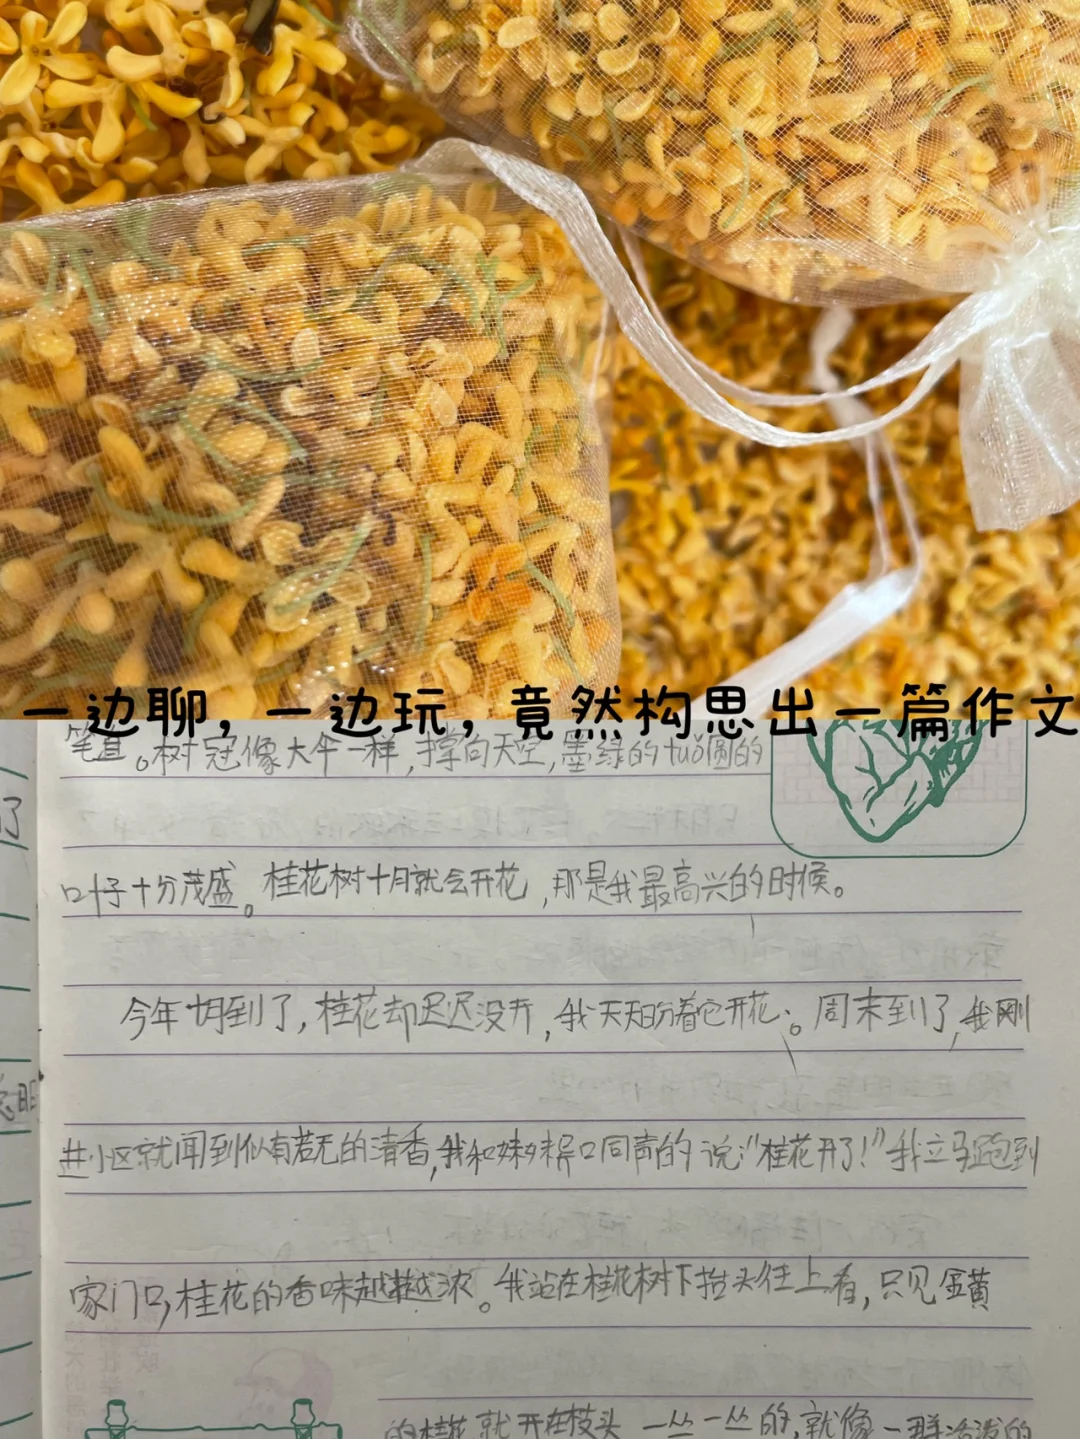 一边聊，一边玩，竟然构思出一篇作文
笔直。树冠像大伞一样,撑向天空,墨绿的tuǒ圆的
叶子十分茂盛。桂花树十月就会开花,那是我最高兴的时候。
今年十月到了,桂花却迟迟没开,我天天盼着它开花。周末到了,我刚
进小区就闻到似有若无的清香,我和妹妹异口同声的说:“桂花开了!”我立马跑到
家门口,桂花的香味越来越浓。我站在桂花树下抬头往上看,只见金黄
的桂花就开在枝头一丛一丛的,就像一群活泼的
了